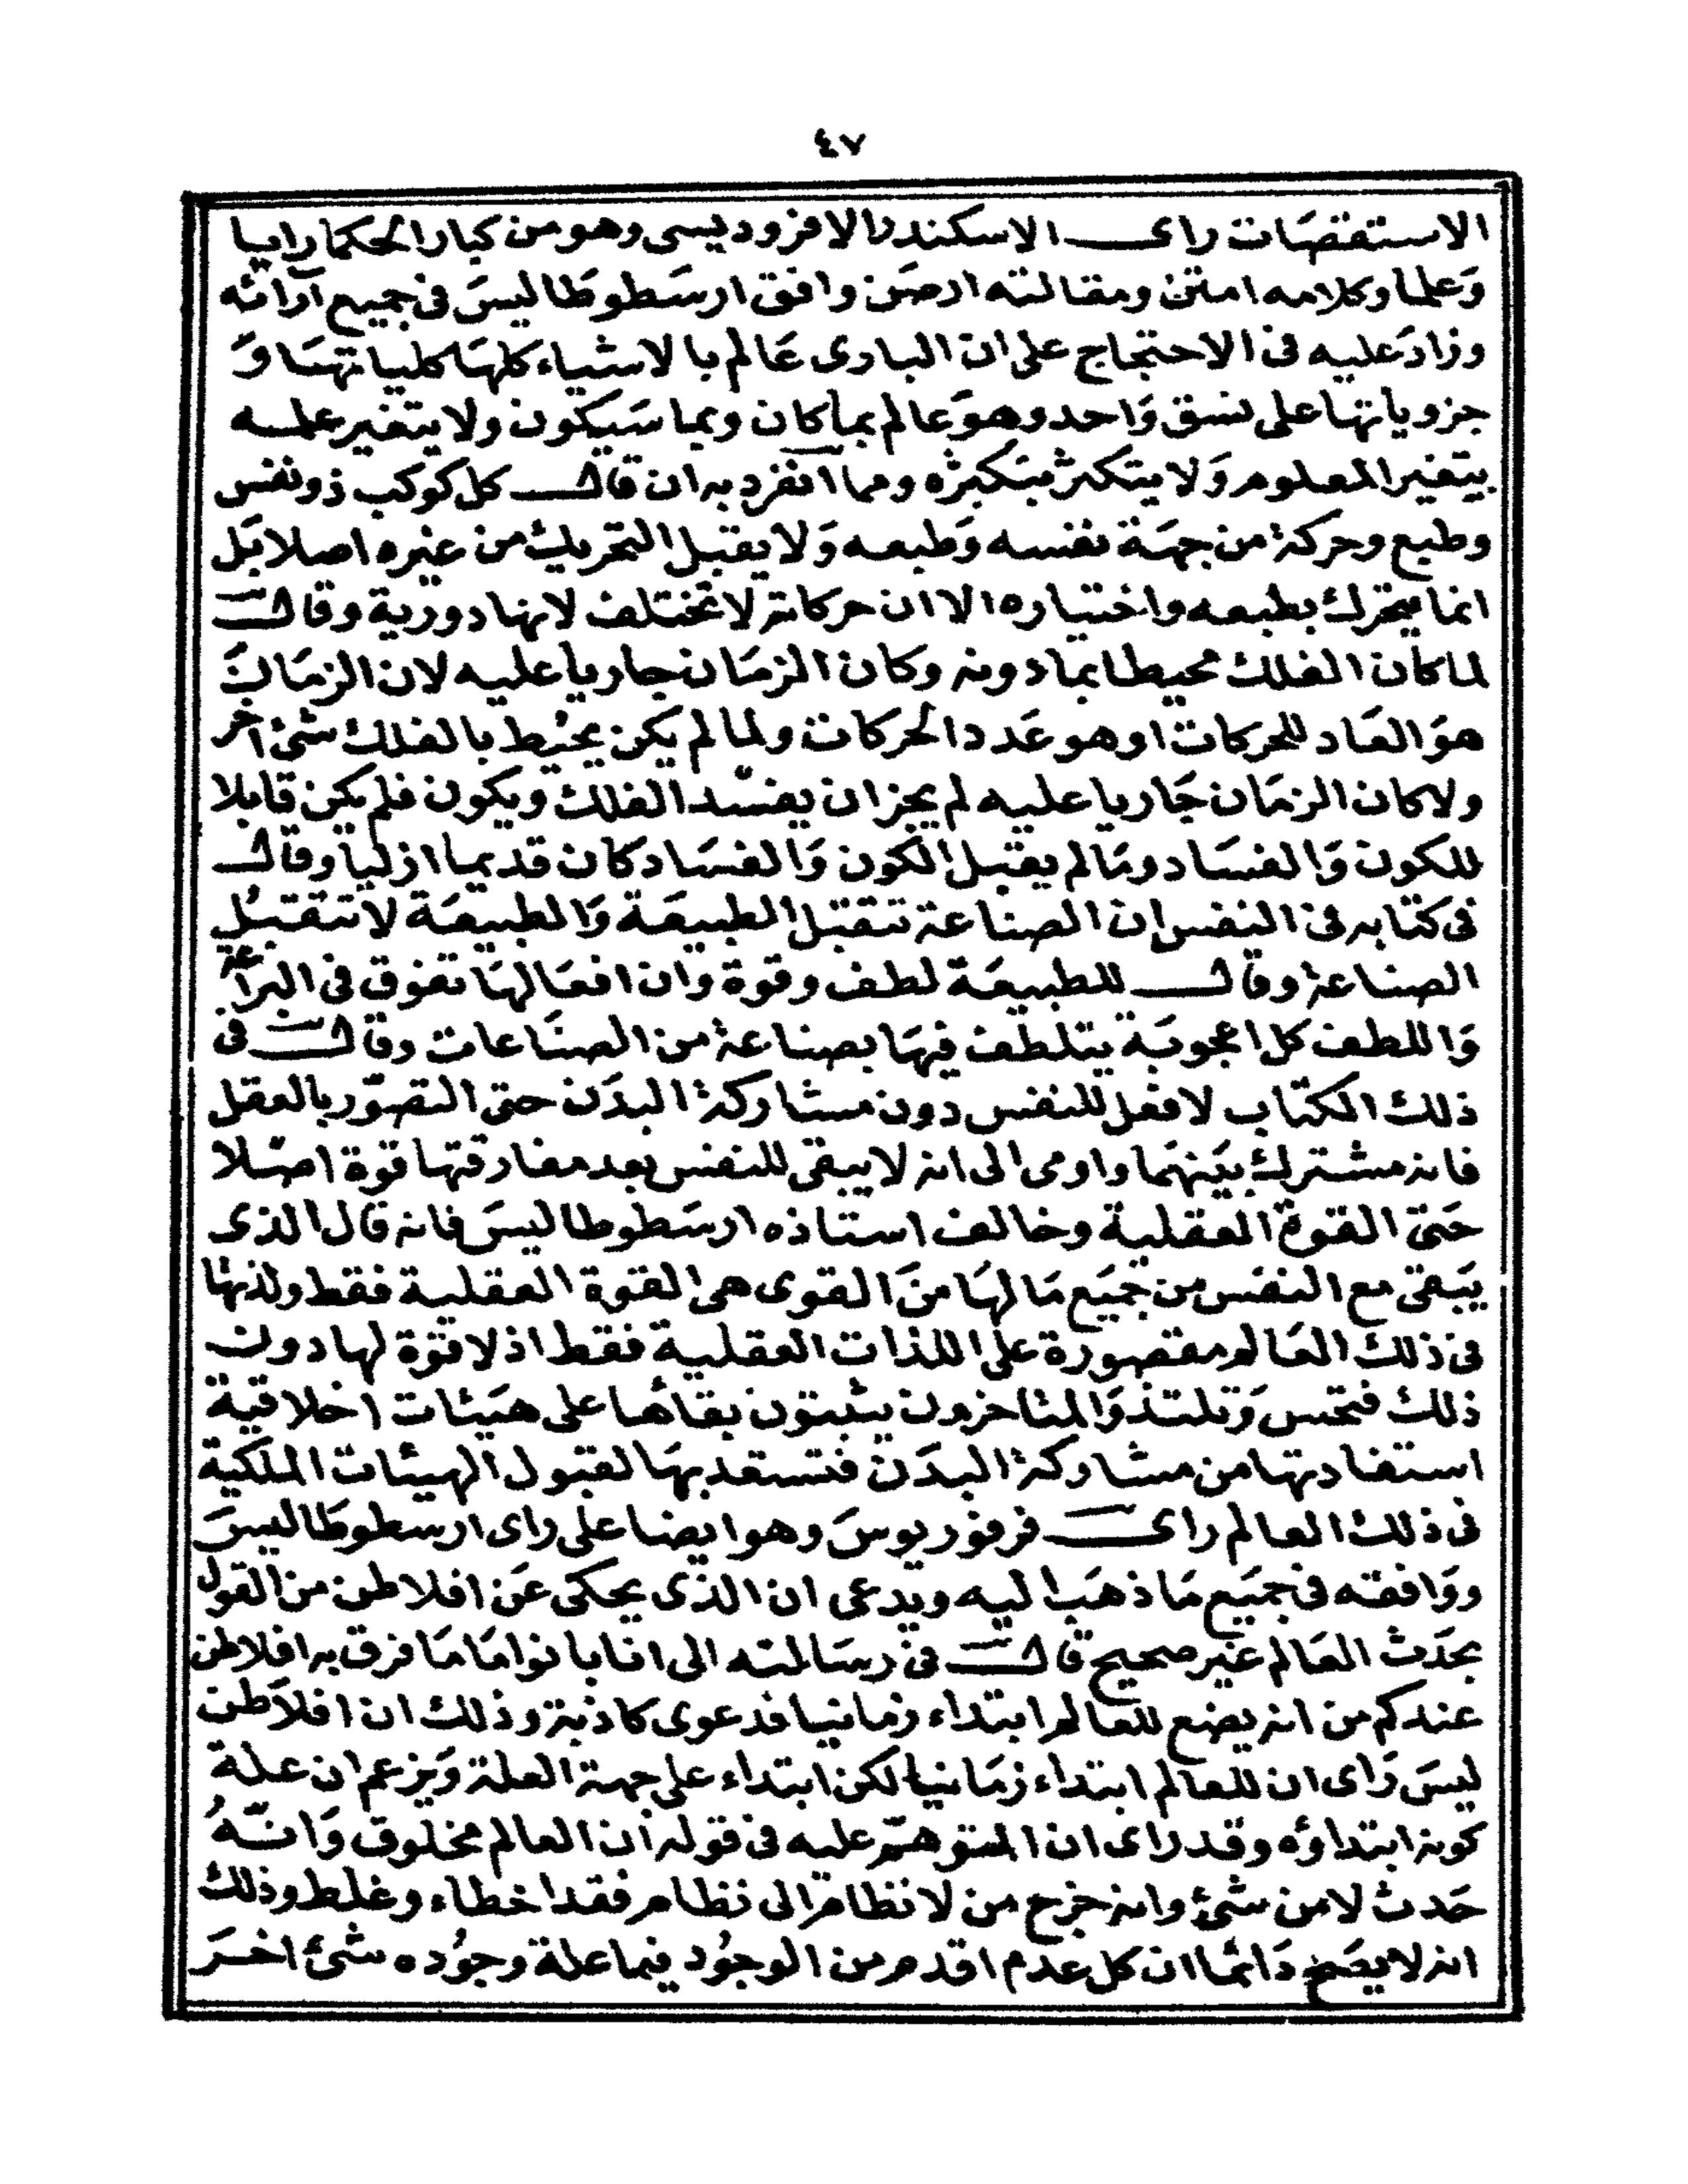 ٤٧
الاستقصات راى الاسكندر الافروديسى وهو من كبار الحكما رايا
وعلما وكلامه امتن ومقالته ارصن وافق ارسطوطاليس فى جميع آرائه
وزاد عليه فى الاحتجاج على ان البارى عالم بالاشياء كلها كلياتها و
جزوياتها على نسق واحد وهو عالم بما كان وبما سيكون ولا يتغير علمه
بتغير المعلوم ولا يتكثر بتكثره ومما انفرد به ان قال كل كوكب ذو نفس
وطبع وحركة من جهة نفسه وطبعه ولا يقبل التحريك من غيره اصلا بل
انما يتحرك بطبعه واختياره الا ان حركاته لا تختلف لانها دورية وقال
لما كان الفلك محيطا بما دونه وكان الزمان جاريا عليه لان الزمان
هو العاد للحركات او هو عدد الحركات ولما لم يكن يحيط بالفلك شئ اخر
ولا كان الزمان جاريا عليه لم يجز ان يفسد الفلك ويكون فلم يكن قابلا
للكون والفساد وما لم يقبل الكون والفساد كان قديما ازليا وقال
فى كتابه فى النفس ان الصناعة تتقبل الطبيعة والطبيعة لا تتقبل
الصناعة وقال للطبيعة لطف وقوة وان افعالها تفوق فى البراعة
واللطف كل اعجوبة يتلطف فيها بصناعة من الصناعات وقال فى
ذلك الكتاب لا فعل للنفس دون مشاركة البدن حتى التصور بالعقل
فانه مشترك بينهما واومى الى انه لا يبقى للنفس بعد مفارقتها قوة اصلا
حتى القوة العقلية وخالف استاذه ارسطوطاليس فانه قال الذى
يبقى مع النفس من جميع ما لها من القوى هى القوة العقلية فقط ولذتها
فى ذلك العالم مقصورة على اللذات العقلية فقط اذ لا قوة لها دون
ذلك فتحس وتلتذ والمتاخرون يثبتون بقاءها على هيئات اخلاقية
استفادتها من مشاركة البدن فتستعد بها لقبول الهيئات الملكية
فى ذلك العالم راى فرفوريوس وهو ايضا على راى ارسطوطاليس
ووافقه فى جميع ما ذهب اليه ويدعى ان الذى يحكى عن افلاطن من القول
بحدث العالم غير صحيح قال فى رسالته الى انابانوا ما ما فرق به افلاطن
عندكم من انه يضع للعالم ابتداء زمانيا فدعوى كاذبة وذلك ان افلاطن
ليس راى ان للعالم ابتداء زمانيا لكن ابتداء على جهة العلة ويزعم ان علة
كونه ابتداؤه وقد راى ان المتوهم عليه فى قوله ان العالم مخلوق وانه
حدث لا من شئ وانه خرج من لا نظام الى نظام فقد اخطاء وغلط وذلك
انه لا يصح دائما ان كل عدم اقدم من الوجود فيما علة وجوده شئ اخر